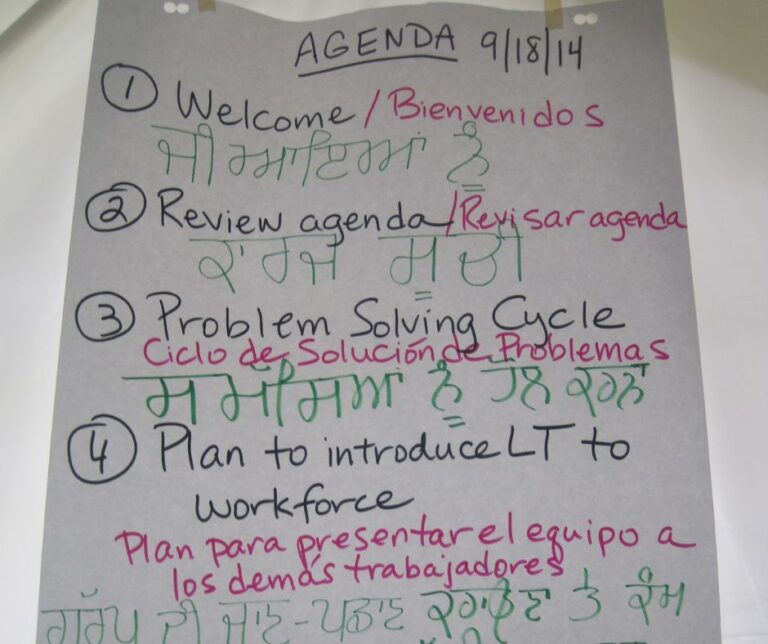 AGENDA 9/18/14
① Welcome / Bienvenidos
ਜੀ ਆਇਆਂ ਨੂੰ
② Review agenda/Revisar agenda
ਕਾਰਜ ਸੂਚੀ
③ Problem Solving Cycle
Ciclo de Solución de Problemas
ਸਮੱਸਿਆ ਨੂੰ ਹੱਲ ਕਰਨਾ
④ Plan to introduce LT to
workforce
Plan para presentar el equipo a
los demás trabajadores
ਗਰੁੱਪ ਦੀ ਜਾਣ-ਪਛਾਣ ਤੇ ਕੰਮ